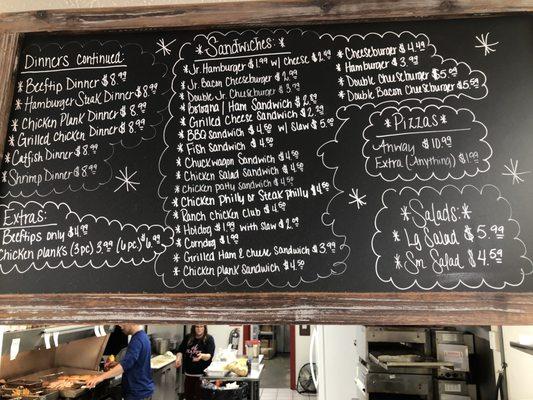 Dinners Continued:
* Beeftip Dinner $8.99
* Hamburger Steak Dinner $8.99
* Chicken Plank Dinner $8.99
* Grilled Chicken Dinner $8.99
* Catfish Dinner $8.99
* Shrimp Dinner $8.99
Extras:
Beeftips only $4.99
Chicken planks (3pc) 3.99 (6pc) $6.99
* Sandwiches: *
* Jr. Hamburger $1.99 w/ cheese $2.29
* Jr. Bacon Cheeseburger $2.99
* Double Jr. Cheeseburger $3.79
* Bologna / Ham Sandwich $2.89
* Grilled Cheese Sandwich $2.99
* BBQ Sandwich $4.50 w/ Slaw $5.00
* Fish Sandwich $4.50
* Chuckwagon Sandwich $4.50
* Chicken Salad Sandwich $4.50
* Chicken patty Sandwich $4.50
* Chicken Philly or Steak Philly $4.50
* Ranch chicken Club $4.50
* Hotdog $1.99 with slaw $2.99
* Corndog $1.99
* Grilled Ham & cheese Sandwich $3.99
* Chicken plank Sandwich $4.50
* Cheeseburger $4.49
* Hamburger $3.99
* Double Cheeseburger $5.00
* Double Bacon Cheeseburger $5.99
* Pizzas *
Anyway $10.99
Extra (Anything) $1.99
* Salads: *
* Lg Salad $5.99
* Sm Salad $4.50